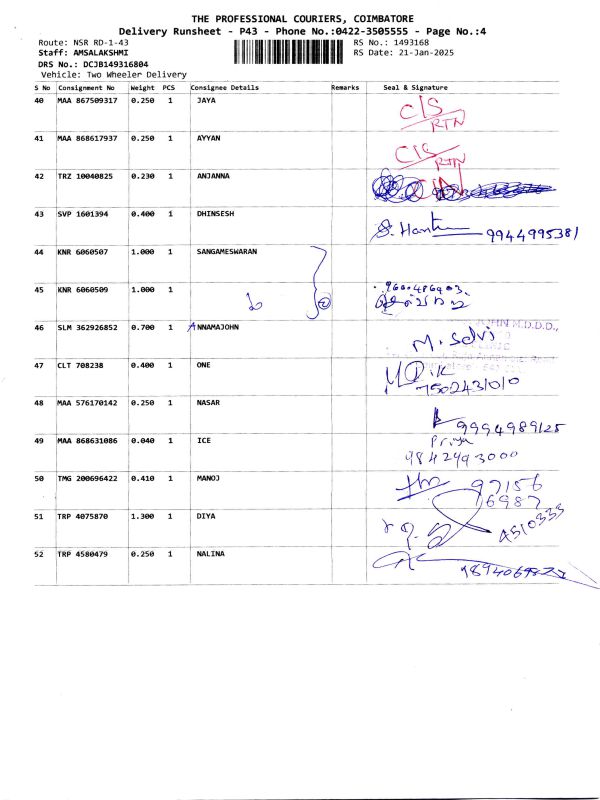 THE PROFESSIONAL COURIERS, COIMBATORE
Delivery Runsheet - P43 - Phone No.:0422-3505555 - Page No.:4
Route: NSR RD-1-43 RS No.: 1493168
Staff: AMSALAKSHMI RS Date: 21-Jan-2025
DRS No.: DCJB149316804
Vehicle: Two Wheeler Delivery
S No Consignment No Weight PCS Consignee Details Remarks Seal & Signature
40 MAA 867509317 0.250 1 JAYA C/S
RTN
41 MAA 868617937 0.250 1 AYYAN C/S
RTN
42 TRZ 10040825 0.230 1 ANJANNA
43 SVP 1601394 0.400 1 DHINSESH 9944995381
44 KNR 6060507 1.000 1 SANGAMESWARAN
45 KNR 6060509 1.000 1 2
46 SLM 362926852 0.700 1 ANNAMAJOHN M. Selvi
47 CLT 708238 0.400 1 ONE
7502431010
48 MAA 576170142 0.250 1 NASAR 9994989125
49 MAA 868631086 0.040 1 ICE Priya
9842993000
50 TMG 200696422 0.410 1 MANOJ 97156
16987
51 TRP 4075870 1.300 1 DIYA 4510333
52 TRP 4580479 0.250 1 NALINA